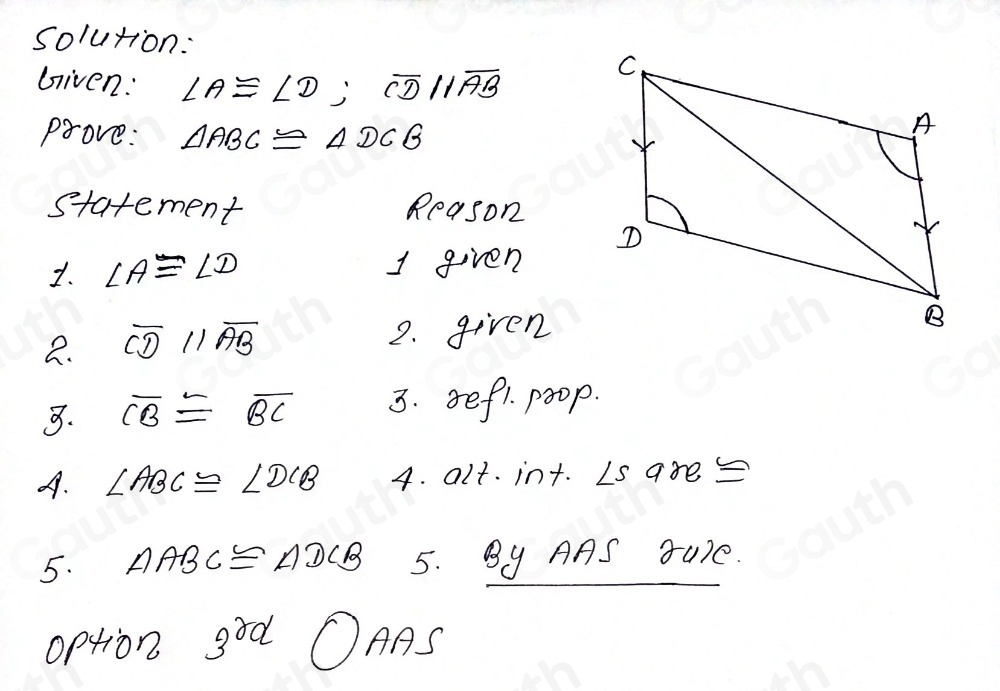 Solution:
Given: ∠A ≅ ∠D ; CD // AB
Prove: ΔABC ≅ ΔDCB
C
A
D
B
Statement Reason
1. ∠A ≅ ∠D 1 given
2. CD // AB 2. given
3. CB ≅ BC 3. refl. prop.
4. ∠ABC ≅ ∠DCB 4. alt. int. ∠s are ≅
5. ΔABC ≅ ΔDCB 5. By AAS rule.
Option 3rd ◯ AAS
Gauth